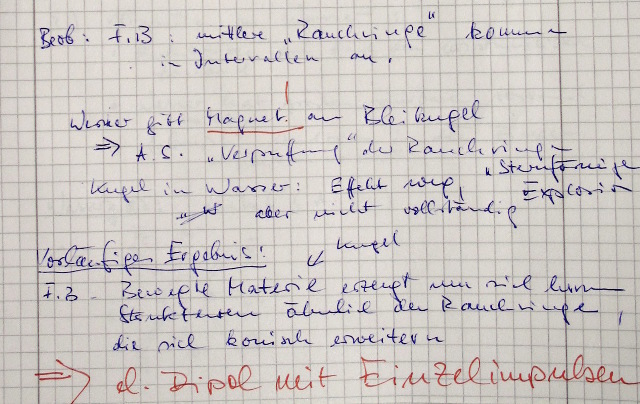 Beob: F.B : mittlere „Rauchringe" kommen
in Intervallen an.
Werner gibt Magnet an Bleikugel
⇒ A.S. „Verpuffung" der Rauchringe
Kugel in Wasser: Effekt weg, „Sternförmige
aber nicht vollständig Explosion
Vorläufiges Ergebnis: Kugel
F.B Bewegte Materie erzeugt um sich herum
Strukturen ähnlich der Rauchringe,
die sich konisch erweitern
⇒ d. Dipol mit Einzelimpulsen